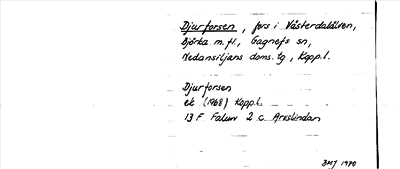 Djurforsen, fors i Västerdalälven,
Björka m.fl., Gagnefs sn,
Nedansiljans doms.lg, Kopp.l.
Djurforsen
ek (1968) Kopp.l.
13 F Falun 2 c Arkslindan
BMJ 1970